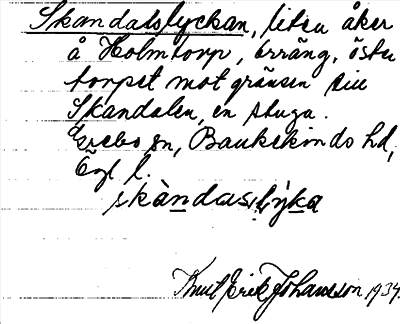 Skandalslyckan, liten åker
å Holmtorp, örräng, öster
torpet mot gränsen till
Skandalen, en stuga.
Grebo sn, Bankekinds hd,
Ögl l.
skàndas,lỳka
Knut Erik Johansson 1934.